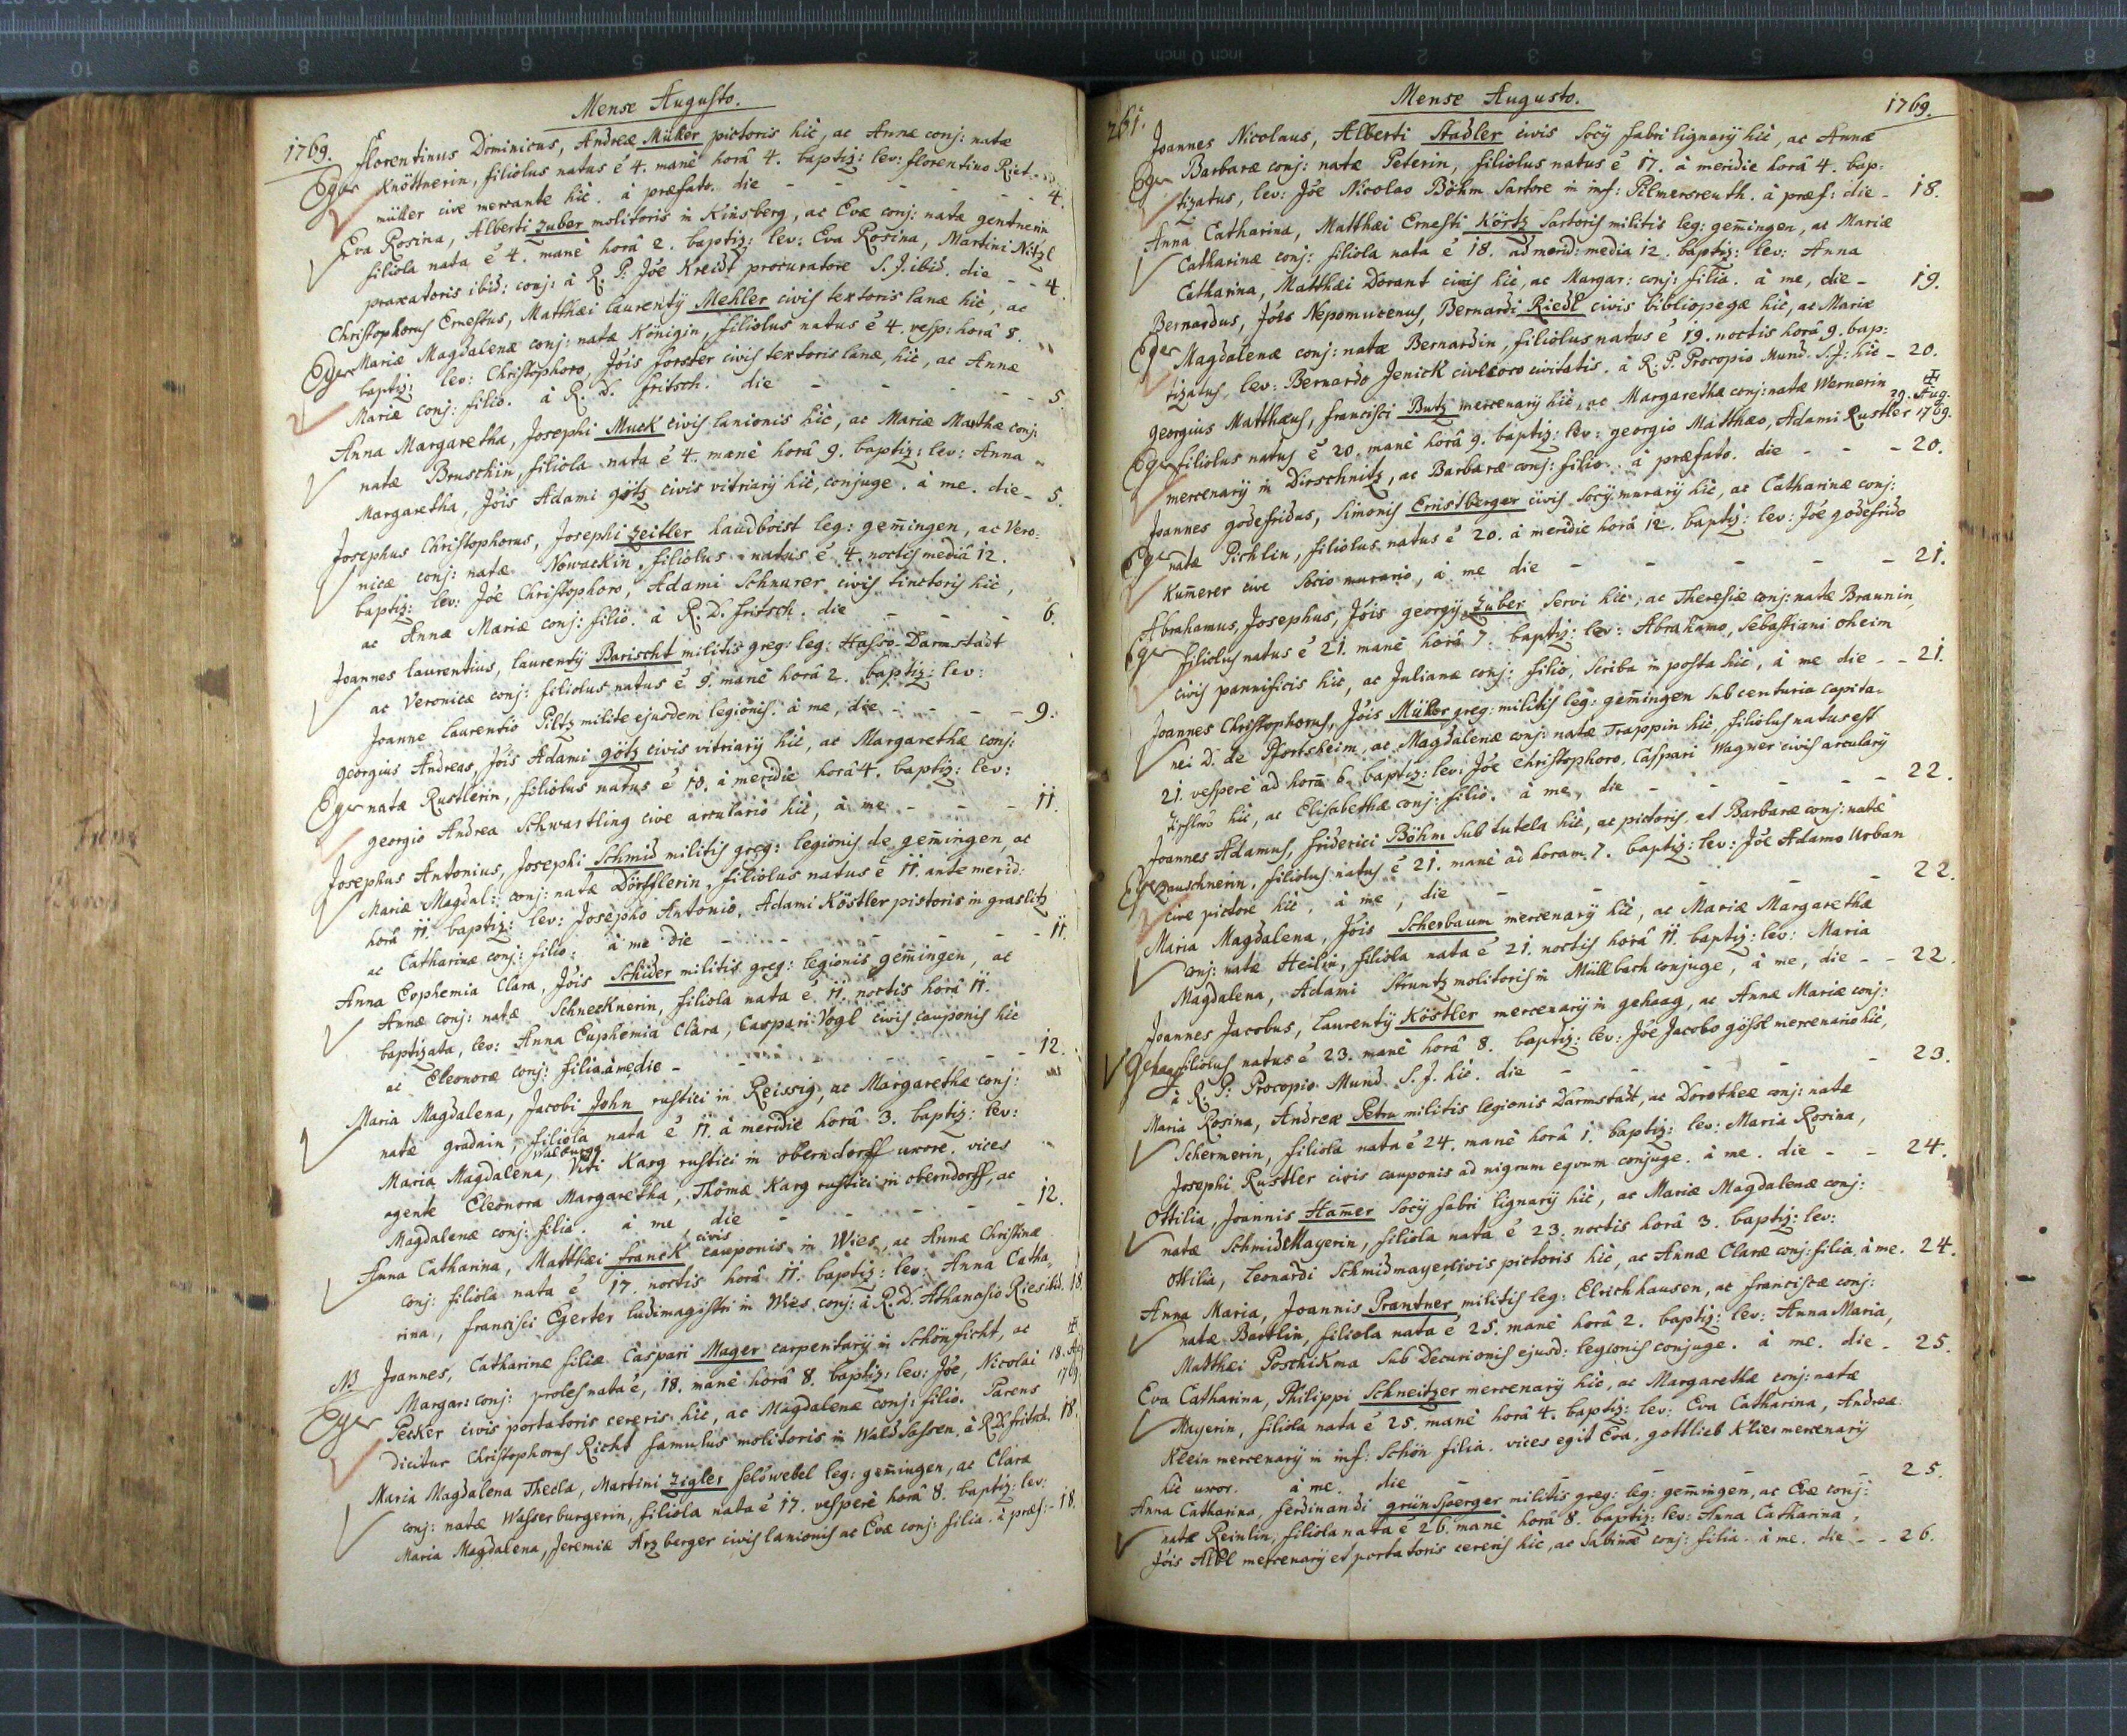 Mense Augusto.
1769. Florentinus Dominicus, Andreæ Müller pictoris hic, ac Annæ conj: natæ
Eger Knöttnerin, filiolus natus ē 4. manè horâ 4. baptiz: lev: florentino Riet-
müller cive mercante hic. à præfato. die - - - - 4.
Eva Rosina, Alberti Zuber molitoris in Kinsberg, ac Evæ conj: natæ gentnerin
filiola nata ē 4. manè horâ 2. baptiz: lev: Eva Rosina, Martini Nitzl
praxatoris ibid: conj: à R. P. Jōe Kreidl procuratore S. J. ibid. die - - 4.
Christophorus Ernestus, Matthæi laurentÿ Mehler civis textoris lanæ hic, ac
Eger Mariæ Magdalenæ conj: natæ Königin, filiolus natus ē 4. vesp: horâ 8.
baptiz: lev: Christophoro, Jōis forster civis textoris lanæ, hic, ac Annæ
Mariæ conj: filio. à R. D. fritsch. die - - - - 5.
Anna Margaretha, Josephi Muck civis lanionis hic, ac Mariæ Marthæ conj:
natæ Bruschin, filiola nata ē 4. manè horâ 9. baptiz: lev: Anna
Margaretha, Jōis Adami götz civis vitriarÿ hic, conjuge. à me. die - 5.
Josephus Christophorus, Josephi Zeitler haudboist leg: gem̄ingen, ac Vero-
nicæ conj: natæ Nowackin, filiolus natus ē 4. noctis mediâ 12.
baptiz: lev: Jōe Christophoro, Adami Schnurer civis tinctoris hic,
ac Annæ Mariæ conj: filio. à R. D. fritsch. die - - - 6.
Joannes laurentius, laurentÿ Barischt militis greg: leg: Hasso-Darmstadt
ac Veronicæ conj: filiolus natus ē 9. manè horâ 2. baptiz: lev:
Joanne laurentio Piltz milite ejusdem legionis. à me, die - - - - 9.
Georgius Andreas, Jōis Adami götz civis vitriarÿ hic, ac Margarethæ conj:
Eger natæ Rustlerin, filiolus natus ē 10. à meridie horâ 4. baptiz: lev:
georgio Andrea Schwartling cive arculario hic, à me - - - 11.
Josephus Antonius, Josephi Schmid militis greg: legionis de gem̄ingen, ac
Mariæ Magdal: conj: natæ Dörfflerin, filiolus natus ē 11. ante merid:
horâ 11. baptiz: lev: Josepho Antonio, Adami Köstler pistoris in graslitz
ac Catharinæ conj: filio. à me die - - - - - 11.
Anna Euphemia Clara, Jōis Schider militis greg: legionis gem̄ingen, ac
Annæ conj: natæ Schnecknerin, filiola nata ē 11. noctis horâ 11.
baptizata, lev: Anna Euphemia Clara, Caspari Vogl civis cauponis hic
ac Eleonoræ conj: filia. à me die - - - - - 12.
Maria Magdalena, Jacobi John rustici in Reissig, ac Margarethæ conj:
natæ gradnin, filiola nata ē 11. à meridie horâ 3. baptiz: lev:
Walburga
Maria Magdalena, Viti Karg rustici in oberndorff uxore. vices
agente Eleonora Margaretha, Thomæ Karg rustici in oberndorff, ac
Magdalenæ conj: filia. à me die - - - - - 12.
civis
Anna Catharina, Matthæi franck cauponis in Wies, ac Annæ Christinæ
conj: filiola nata ē 17. noctis horâ 11. baptiz: lev: Anna Catha-
rina, francisci Egerter ludimagistri in Wies conj: à R. D. Athanasio Ries ibid. 18.
NB Joannes, Catharinæ filiæ Caspari Mager carpentarÿ in Schönficht, ac
Margar: conj: proles nata ē, 18. manè horâ 8. baptiz: lev: Jōe, Nicolai 18. Aug
1769
Eger Pecker civis portatoris cereris hic, ac Magdalenæ conj: filio. Parens
dicitur Christophorus Richt famulus molitoris in Waldsassen. à R. D. fritsch. 18.
Maria Magdalena Thecla, Martini Zigler feldwebel leg: gem̄ingen, ac Clara
conj: natæ Wasserburgerin, filiola nata ē 17. vesperè horâ 8. baptiz: lev:
Maria Magdalena, Jeremiæ Arzberger civis lanionis ac Evæ conj: filia. à præf: - 18.
261. Mense Augusto. 1769.
Joannes Nicolaus, Alberti Stadler civis socÿ fabri lignarÿ hic, ac Annæ
Eger Barbaræ conj: natæ Peterin, filiolus natus ē 17. à meridie horâ 4. bap-
tizatus, lev: Jōe Nicolao Böhm sartore in inf: Pilmersreuth. à præf: die - 18.
Anna Catharina, Matthæi Ernesti Körtz sartoris militis leg: gem̄ingen, ac Mariæ
Catharinæ conj: filiola nata ē 18. ad merid: media 12. baptiz: lev: Anna
Catharina, Matthæi Dorant civis hic, ac Margar: conj: filia. à me, die - 19.
Bernardus, Jōes Nepomucenus, Bernardi Riedl civis bibliopegæ hic, ac Mariæ
Eger Magdalenæ conj: natæ Bernardin, filiolus natus ē 19. noctis horâ 9. bap-
tizatus, lev: Bernardo Jenick civitatis. à R. P. Procopio Mund. S. J. hic - 20.
Georgius Matthæus, francisci Butz mercenarÿ hic, ac Margarethæ conj: natæ Wernerin 29. Aug.
Eger filiolus natus ē 20. manè horâ 9. baptiz: lev: georgio Matthæo, Adami Rustler 1769.
mercenarÿ in Dirschnitz, ac Barbaræ conj: filio. à præfato. die - - - 20.
Joannes godefridus, Simonis Ernstberger civis socÿ murarÿ hic, ac Catharinæ conj:
Eger natæ Pichlin, filiolus natus ē 20. à meridie horâ 12. baptiz: lev: Jōe godefrido
Kum̄erer cive socio murario, à me die - - - - - 21.
Abrahamus, Josephus, Jōis georgÿ Zuber servi hic, ac Theresiæ conj: natæ Braunin,
Eger filiolus natus ē 21. manè horâ 7. baptiz: lev: Abrahamo, Sebastiani oheim
civis pannificis hic, ac Julianæ conj: filio, scriba in posta hic, à me die - - 21.
Joannes Christophorus, Jōis Müller greg: militis leg: gem̄ingen sub centuria capita-
nei D. de Pfortsheim, ac Magdalenæ conj: natæ Trappin hic, filiolus natus est
21. vesperè ad horā 6. baptiz: lev: Jōe christophoro, Caspari Wagner civis arcularÿ
hic, ac Elisabethæ conj: filio. à me, die - - - - - 22.
Joannes Adamus, friderici Böhm sub tutela hic, ac pictoris, et Barbaræ conj: natæ
Eger Zauschnerin, filiolus natus ē 21. manè ad horam 7. baptiz: lev: Jōe Adamo Urban
cive pictore hic, à me, die - - - - - 22.
Maria Magdalena, Jōis Scherbaum mercenarÿ hic, ac Mariæ Margarethæ
conj: natæ Heilin, filiola nata ē 21. noctis horâ 11. baptiz: lev: Maria
Magdalena, Adami Struntz molitoris in Müllbach conjuge, à me, die - - 22.
Joannes Jacobus, laurentÿ Köstler mercenarÿ in gehaag, ac Annæ Mariæ conj:
Gehaag filiolus natus ē 23. manè horâ 8. baptiz: lev: Jōe Jacobo gößl mercenario hic,
à R. P. Procopio Mund S. J. hic. die - - - - - 23.
Maria Rosina, Andreæ Petru militis legionis Darmstadt, ac Dorotheæ conj: natæ
Schermerin, filiola nata ē 24. manè horâ 1. baptiz: lev: Maria Rosina,
Josephi Rustler civis cauponis ad nigrum equum conjuge. à me. die - - 24.
Ottilia, Joannis Ham̄er socÿ fabri lignarÿ hic, ac Mariæ Magdalenæ conj:
natæ Schmidmayerin, filiola nata ē 23. noctis horâ 3. baptiz: lev:
ottilia, Leonardi Schmidmayer civis pictoris hic, ac Annæ Claræ conj: filia. à me. 24.
Anna Maria, Joannis Prantner militis leg: Elrichhausen, ac franciscæ conj:
natæ Bartlin, filiola nata ē 25. manè horâ 2. baptiz: lev: Anna Maria,
Matthæi Poschikma sub Decurionis ejusd: legionis conjuge. à me. die - 25.
Eva Catharina, Philippi Schneitzer mercenarÿ hic, ac Margarethæ conj: natæ
Mayerin, filiola nata ē 25. manè horâ 4. baptiz: lev: Eva Catharina, Andreæ
Klein mercenarÿ in inf: Schön filia. vices egit Eva, gottlieb Klier mercenarÿ
hic uxor. à me. die - - - - 25.
Anna Catharina, ferdinandi grünsperger militis greg: leg: gem̄ingen, ac Evæ conj:
natæ Reinlin, filiola nata ē 26. manè horâ 8. baptiz: lev: Anna Catharina,
Jōis Albl mercenarÿ et portatoris cereris hic, ac Sabinæ conj: filia. à me. die - - 26.